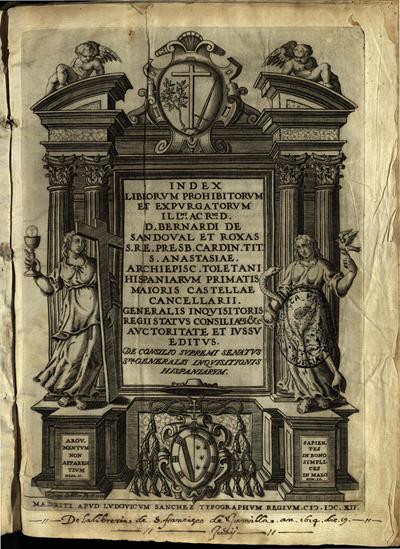 INDEX
LIBRORVM PROHIBITORVM
ET EXPVRGATORVM
ILL.mi AC R.mi D.
D. BERNARDI DE
SANDOVAL ET ROXAS
S.R.E. PRESB. CARDIN. TIT.
S. ANASTASIAE.
ARCHIEPISC. TOLETANI
HISPANIARVM PRIMATIS
MAIORIS CASTELLAE
CANCELLARII.
GENERALIS INQVISITORIS
REGII STATVS CONSILIARII &c
AVCTORITATE ET IVSSV
EDITVS.
DE CONSILIO SVPREMI SENATVS
S.tae GENERALIS INQVISITIONIS
HISPANIARVM.
ARGV
MENTVM
NON
APPAREN
TIVM
SAPIEN
TES
IN BONO
SIMPLI
CES
IN MALO
MADRITI APVD LVDOVICVM SANCHEZ TYPOGRAPHVM REGIVM. CIↃ. IↃC. XII.
De la libreria de S. francisco de
an. 1614.